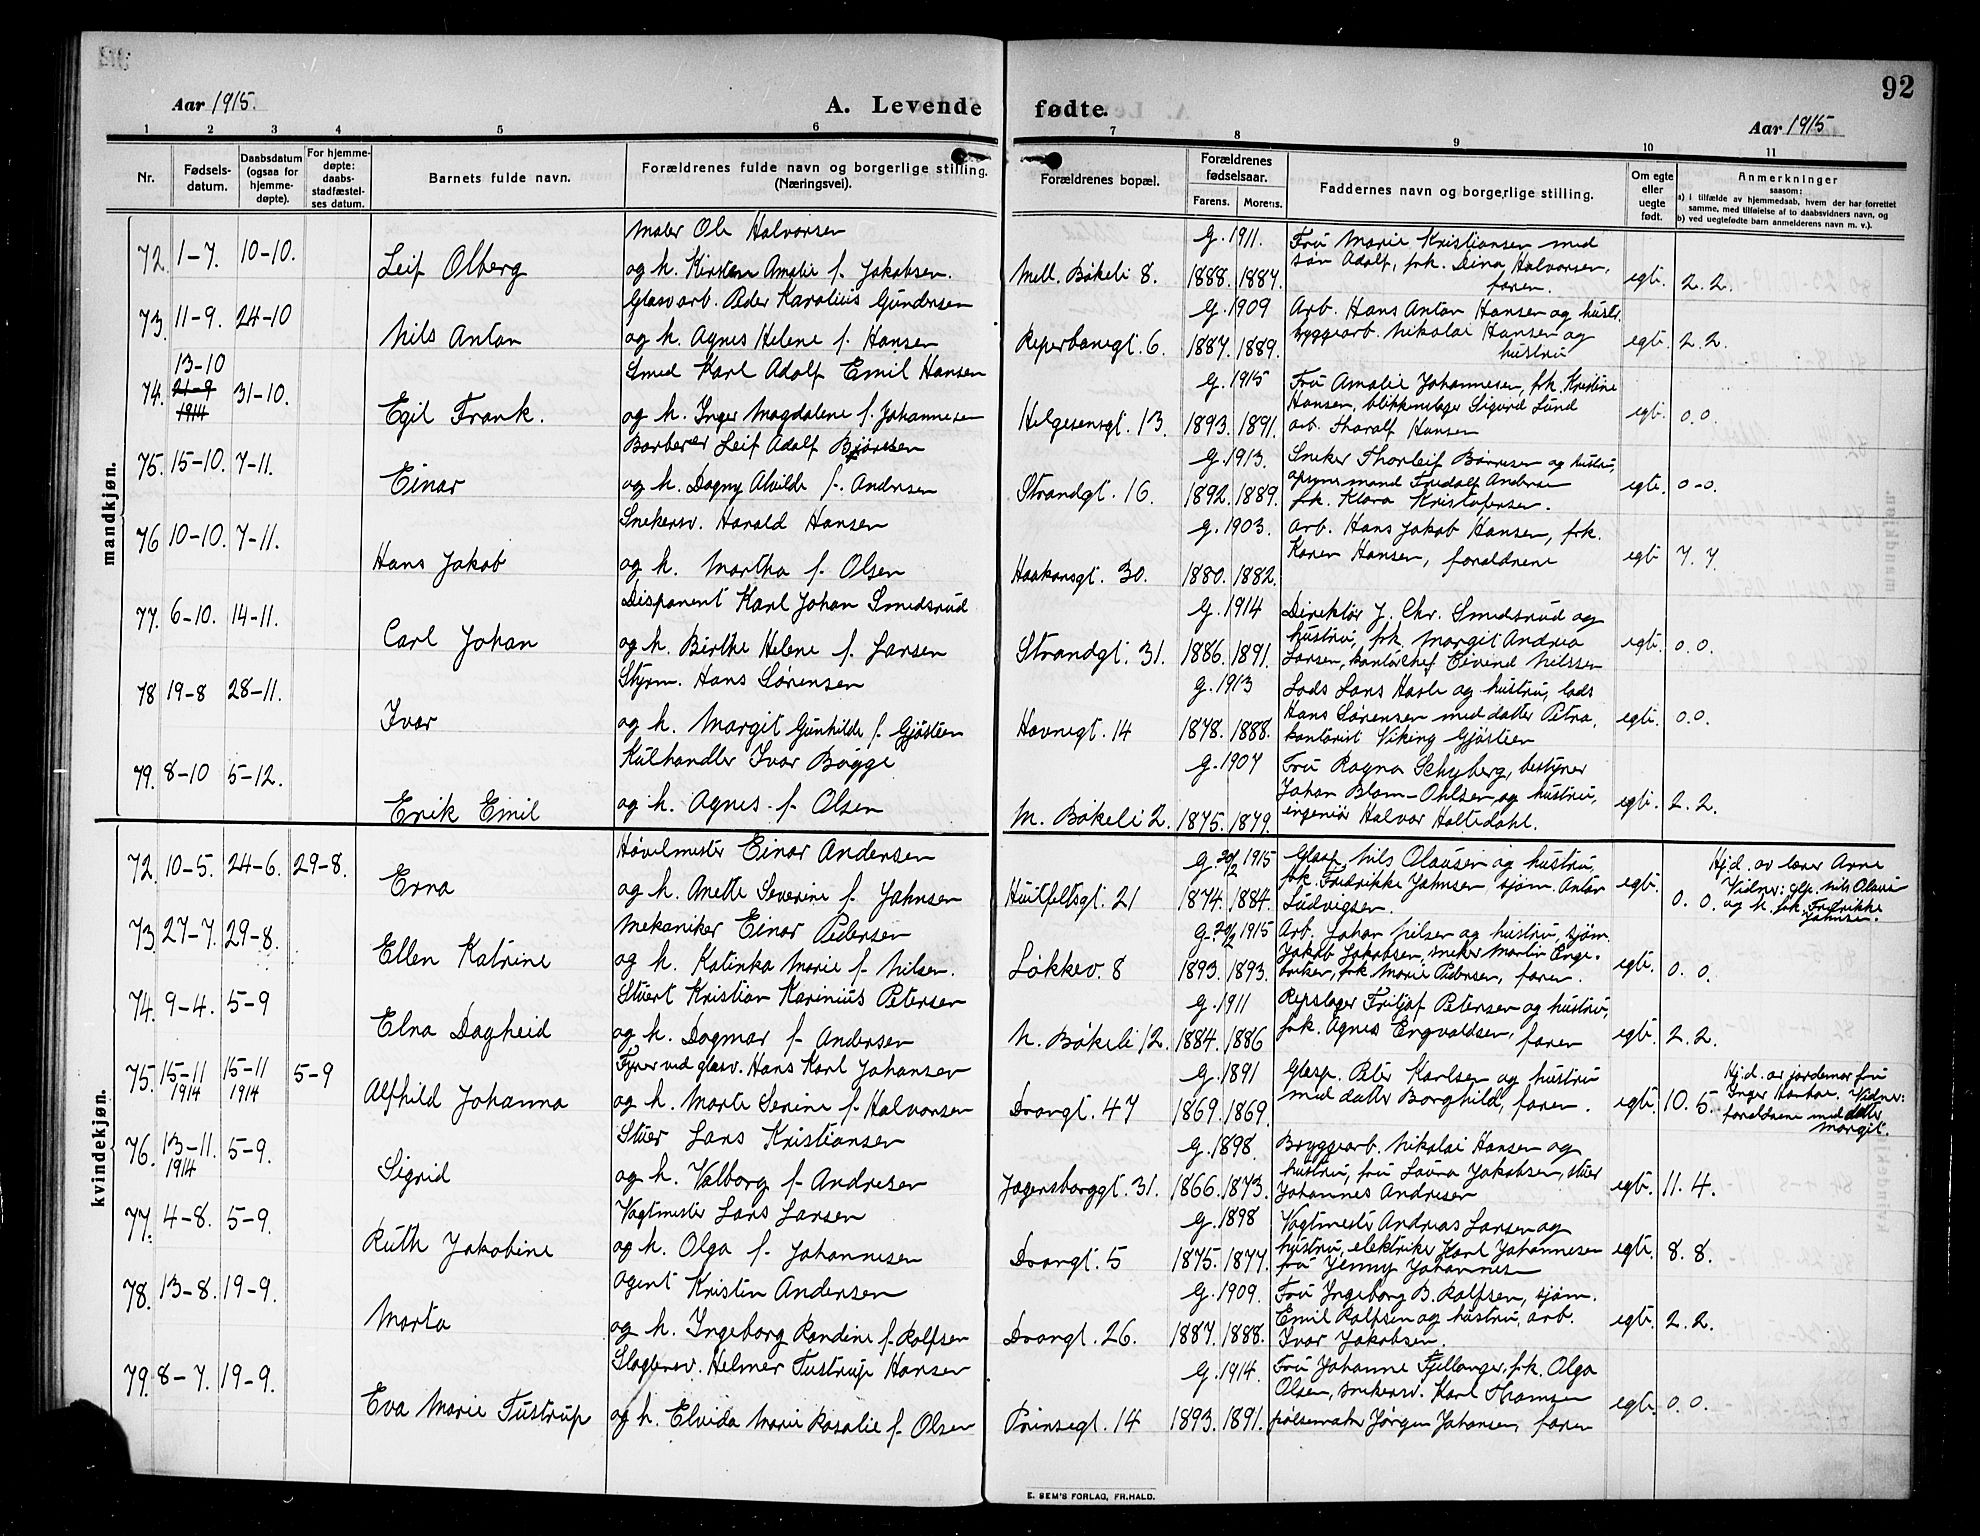 92
Aar 1915.
A. Levende fødte.
Aar 1915
1 2 3 4 5 6 7 8 9 10 11
Nr.
Fødsels-
datum.
Daabsdatum
(ogsaa for
hjemme-
døpte).
For hjemme-
døpte:
daabs-
stadfæstel-
ses datum.
Barnets fulde navn.
Forældrenes fulde navn og borgerlige stilling.
(Næringsvei).
Forældrenes bopæl.
Forældrenes
fødselsaar.
Farens. Morens.
Faddernes navn og borgerlige stilling.
Om egte
eller
uegte
født.
Anmerkninger
saasom:
a) i tilfælde av hjemmedaab, hvem der har forrettet
samme, med tilføielse af to daabsvidners navn, og
b) ved uegtefødte barn anmelderens navn m. v.).
mandkjøn.
72. 1-7. 10-10. Leif Olberg
Maler Ole Halvorsen
og h. Kirsten Amalie f. Jakobsen.
Mell. Bøkeli 8.
g. 1911.
1888. 1887.
Fru Marie Kristiansen med
søn Adolf, frk. Dina Halvorsen,
faren.
egte. 2. 2.
73. 11-9. 24-10 Nils Anton
Glasv.arb. Peder Karolius Gundersen
og h. Agnes Helene f. Hansen
Reperbanegt. 6.
g. 1909
1887. 1889.
Arb. Hans Anton Hansen og hustr.
byggearb. Nikolai Hansen og
hustru
egte. 2. 2.
74. 13-10
21-9
1914
31-10. Egil Frank.
Smed Karl Adolf Emil Hansen
og h. Inger Magdalene f. Johannesen
Helgesensgt. 13.
g. 1915
1893. 1891.
Fru Amalie Johannesen, frk. Kristine
Hansen, blikkenslager Sigurd Lund
arb. Tharalf Hansen
egte. 0. 0.
75. 15-10. 7-11. Einar
Barberer Leif Adolf
og h. Dagny Alvilde f. Andersen
Strandgt. 16.
g. 1913.
1892. 1889.
Sneker Thorleif Børresen og hustru,
opsynsmand Fredolf Andersen
frk. Klara Kristofersen.
egte. 0-0.
76 10-10. 7-11. Hans Jakob
Snekersv. Harald Hansen
og h. Martha f. Olsen
Haakonsgt. 30.
g. 1903.
1880. 1882.
Arb. Hans Jakob Hansen, frk.
Karen Hansen, forældrene
egte 7. 7.
77. 6-10. 14-11. Carl Johan
Disponent Karl Johan Smedsrud
og h. Birthe Helene f. Larsen
Strandgt. 31.
g. 1914
1886. 1891.
Direktør J. Chr. Smedsrud og
hustru, frk. Margit Andrea
Larsen, kontorchef Eivind Nilssen
egte. 0. 0.
78 19-8 28-11. Ivar
Styrm. Hans Sørensen
og h. Margit Gunhilde f. Gjøstien
Havnegt. 14
g. 1913
1878. 1888.
Lods Lars Hasle og hustru, lods
Hans Sørensen med datter Petra,
kontorist Viking Gjøstien
egte. 0. 0.
79. 8-10 5-12. Erik Emil
Kulhandler Ivar Bøgge
og h. Agnes f. Olsen
M. Bøkeli 2.
g. 1907
1875. 1879.
Fru Ragna Schyberg, bestyrer
Johan Blom-Ohlsen og hustru,
ingeniør Halvor Holtedahl.
egte. 2. 2.
kvindekjøn.
72. 10-5. 24-6. 29-8. Erna
Høvelmester Einar Andersen
og h. Anette Severine f. Jahnsen
Huitfeltsgt. 21
g. 20/2 1915
1874. 1884.
Glasp. Nils Olausen og hustru,
frk. Fredrikke Jahnsen, sjøm. Anton
Ludvigsen.
egte. 0. 0.
Hj.d. av lærer Arne
Vidner: glp. Nils Olausen
og h. frk. Fredrikke
Jahnsen.
73. 27-7. 29-8. Ellen Katrine
Mekaniker Einar Pedersen
og h. Katinka Marie f. Nilsen.
Løkkev. 8
g. 20/2 1915
1893. 1893.
Arb. Johan Nilsen og hustru, sjøm.
Jakob Jakobsen, sneker Martin Enge-
bretsen, frk. Marie Pedersen, faren.
egte. 0. 0.
74. 9-4. 5-9 Elna Dagheid
Stuert Kristian Karinius Petersen
og h. Dagmar f. Andersen
N. Bøkeli 12.
g. 1911
1884. 1886
Repslager Fritjof Petersen og hustru,
frk. Agnes Engvaldsen, faren
egte. 2. 2.
75. 15-11
1914
15-11
1914
5-9 Alfhild Johanna
Fyrer ved glasv. Hans Karl Johansen
og h. Marte Serine f. Halvorsen
Dvangt. 47
g. 1891
1869. 1869.
Glasp. Peter Karlsen og hustru
med datter Borghild, faren.
egte. 10. 5.
Hj.d. av jordemor fru
Inger . Vidner:
forældrene med datter
Margit.
76. 13-11.
1914
5-9. Sigrid
Stuer Lars Kristiansen
og h. Valborg f. Andresen
Jegersborggt. 31.
g. 1898.
1866. 1873.
Bryggearb. Nikolai Hansen og
hustru, fru Laura Jakobsen, stuer
Johannes Andresen
egte. 11. 4.
77. 4-8. 5-9. Ruth Jakobine
Vagtmester Lars Larsen
og h. Olga f. Johannesen
Dvangt. 5
g. 1898
1875. 1877.
Vagtmester Andreas Larsen og
hustru, elektriker Karl Johannesen
fru Jenny Johannes
egte. 8. 8.
78. 13-8. 19-9. Marta
Agent Kristen Andersen
og h. Ingeborg Randine f. Rolfsen
Dvangt. 26.
g. 1909.
1887. 1888.
Fru Ingeborg B. Rolfsen, sjøm.
Emil Rolfsen og hustru, arb.
Ivar Jakobsen.
egte. 2. 2.
79. 8-7. 19-9. Eva Marie Tustrup
Slagtersv. Helmer Tustrup Hansen
og h. Elvida Marie Rosalie f. Olsen
Prinsegt. 14
g. 1914.
1893. 1891.
Fru Johanne Fjellanger, frk. Olga
Olsen, snekersv. Karl Thomsen
pølsemaker Jørgen Johansen, faren
egte. 0. 0.
E. SEM'S FORLAG, FR.HALD.